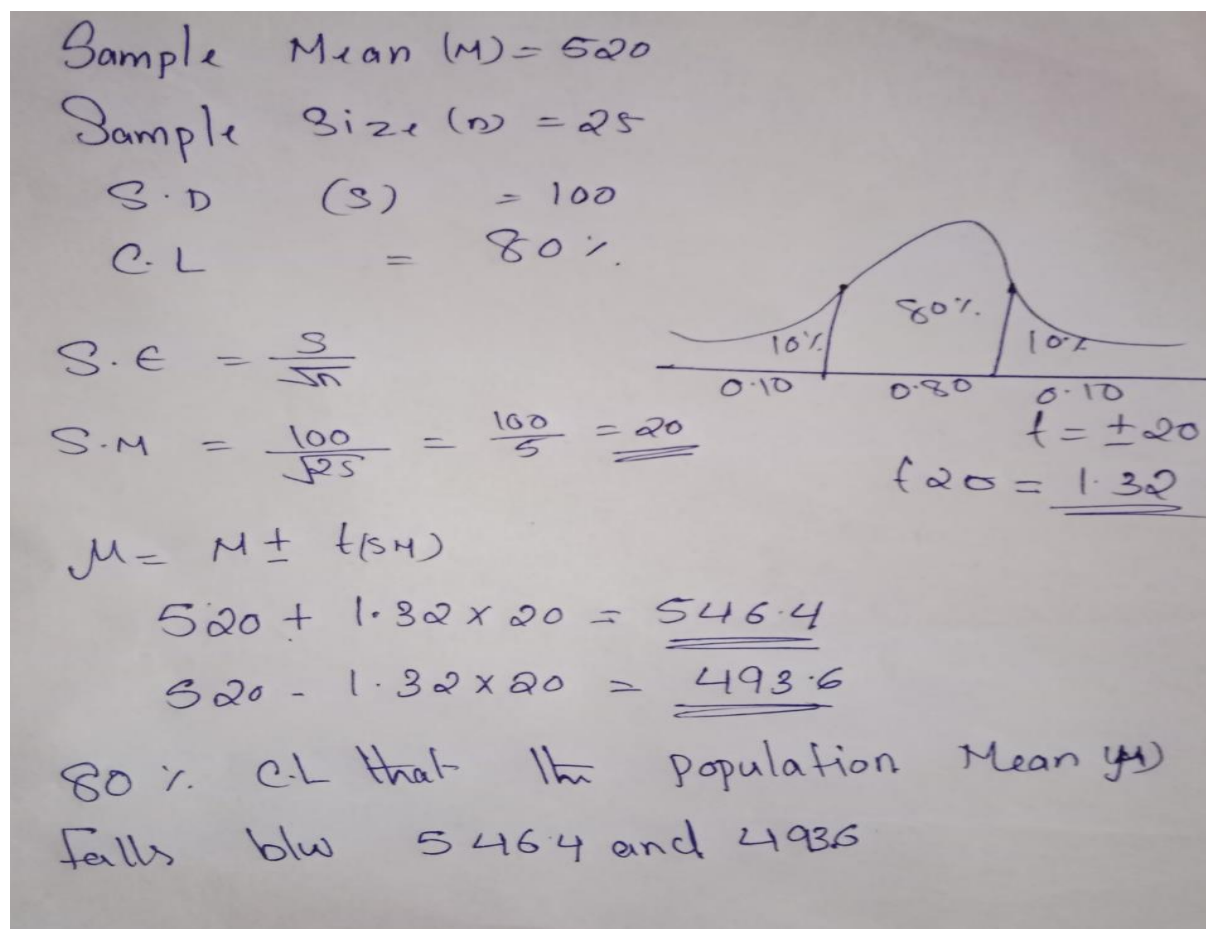 Sample Mean (M) = 520
Sample Size (n) = 25
S.D (S) = 100
C.L = 80%.
S.E = S/√n
80%.
10%
10%
0.10 0.80 0.10
S.M = 100/√25 = 100/5 = 20
t = ± 20
t20 = 1.32
μ = M ± t(SM)
520 + 1.32 x 20 = 546.4
520 - 1.32 x 20 = 493.6
80%. C.L that the population Mean (μ)
falls b/w 546.4 and 493.6